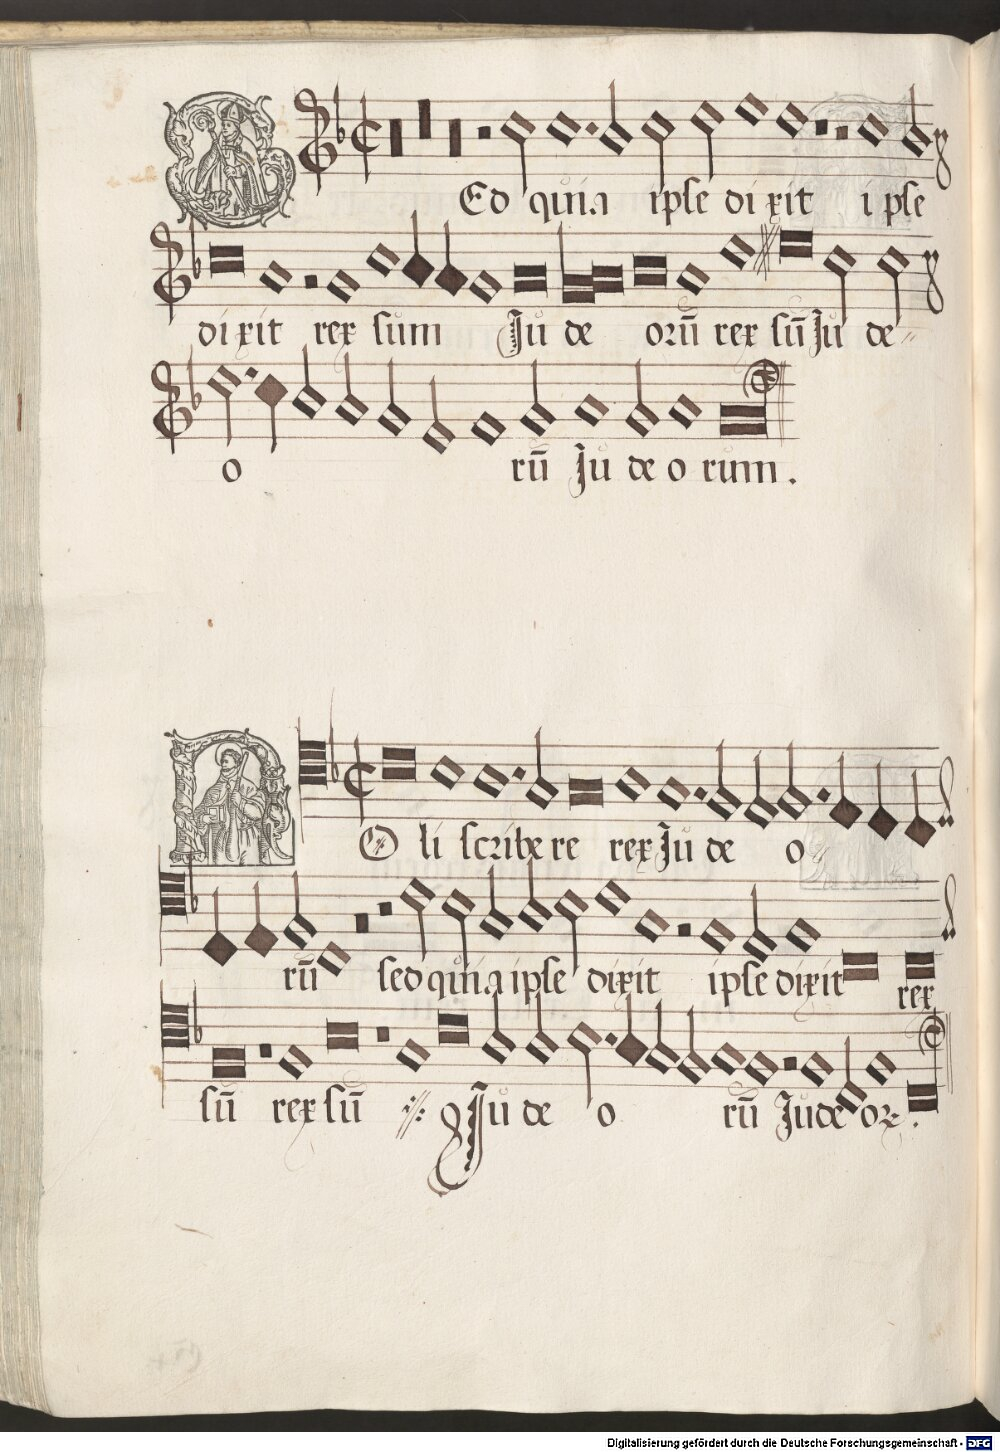 Sed quia ipse dixit ipse
dixit rex sum Jude orū rex sū Jude
o rū Judeorum.
Noli scribere rex Jude o
rū sed quia ipse dixit ipse dixit rex
sū rex sū Jude o rū Jude
Digitalisierung gefördert durch die Deutsche Forschungsgemeinschaft - DFG